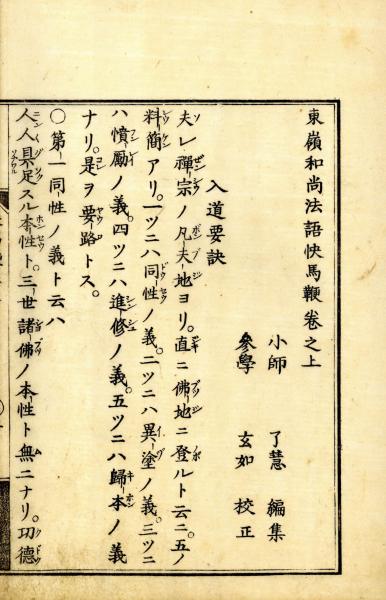 東嶺和尚法語快馬鞭卷之上
小師 了慧 編集
參學 玄如 校正
入道要訣
夫レ禪宗ノ凡夫地ヨリ。直ニ佛地ニ登ルト云ニ。五ノ
料簡アリ。一ツニハ同性ノ義。二ツニハ異塗ノ義。三ツニ
ハ憤勵ノ義。四ツニハ進修ノ義。五ツニハ歸本ノ義
ナリ。是ヲ要路トス。
○第一同性ノ義ト云ハ
人人具足スル本性ト。三世諸佛ノ本性ト無二ナリ。功德